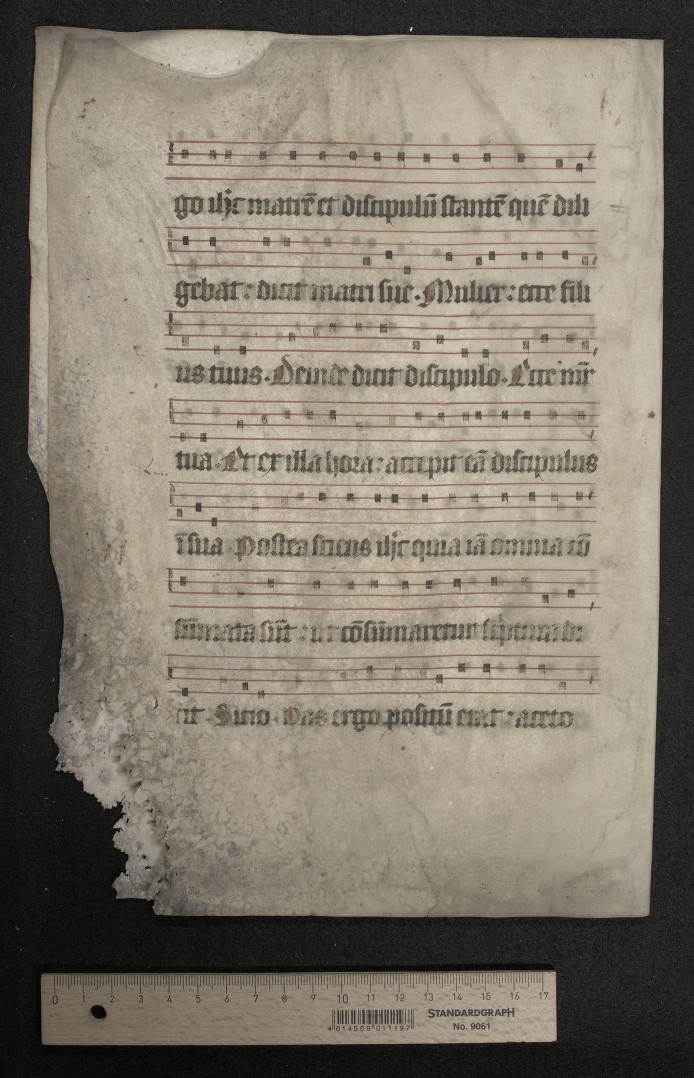 go ih̅c matrē et discipulū stantē quē dili
gebat: dicit matri sue. Mulier: ecce fili
us tuus. Deinde dicit discipulo. Ecce m̅r
tua. Et ex illa hora: accepit eā discipulus
ī sua. Postea sciens ih̅c quia iā omnia cō
sūmata sūt: ut cōsūmaretur sc̅ptura di
cit. Sicio. Vas ergo positū erat: aceto
0 1 2 3 4 5 6 7 8 9 10 11 12 13 14 15 16 17
4 014509 011197
STANDARDGRAPH
No. 9061